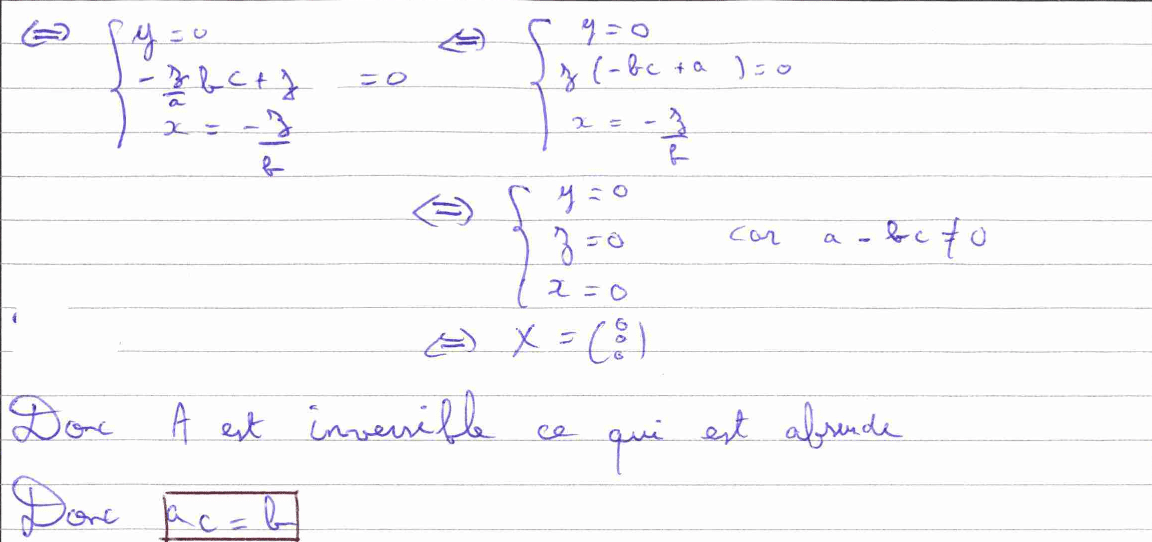 ⇔ { y = 0 ⇔ { y = 0
- z/a bc + z = 0 z (-bc + a ) = 0
x = - z/b x = - z/b
⇔ { y = 0
z = 0 car a - bc ≠ 0
x = 0
⇔ X = (0 0 0)
Donc A est inversible ce qui est absurde
Donc ac = b